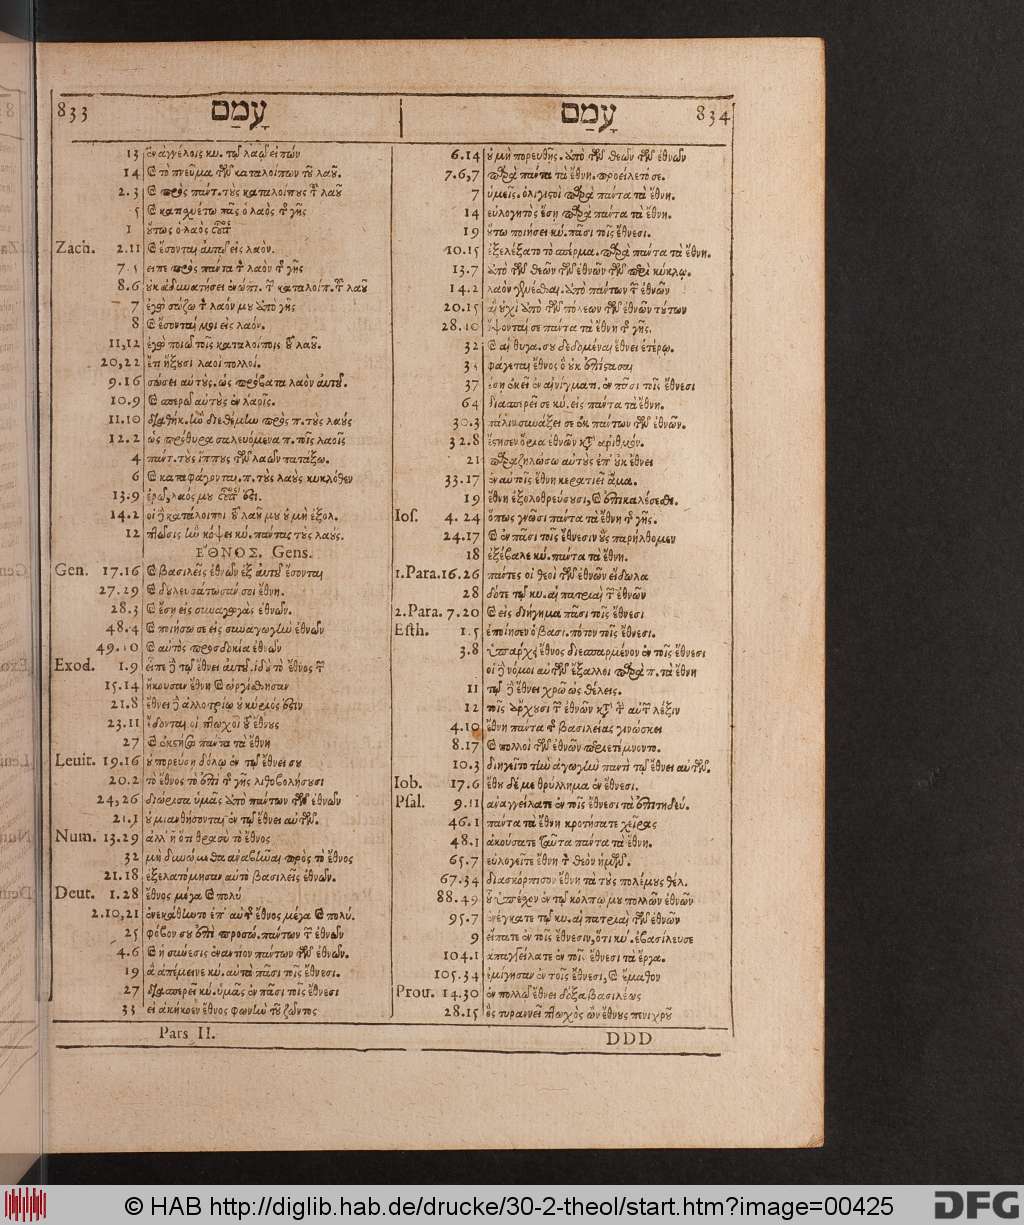 833 עָמַם
13 ἐν ἀγγέλοις κυ. τῷ λαῷ εἶπων
14 καὶ τὸ πνεῦμα τῶν καταλοίπων τοῦ λαοῦ.
2.3 καὶ πρὸς πάντ. τοὺς καταλοίπους τοῦ λαοῦ
5 καὶ κατισχυέτω πᾶς ὁ λαὸς τῆς γῆς
1 οὕτως ὁ λαὸς οὗτος
Zach. 2.11 καὶ ἔσονται αὐτῷ εἰς λαόν.
7.5 εἰπε πρὸς πάντα τὸν λαὸν τῆς γῆς
8.6 οὐκ ἀδυνατήσει ἐνώπ. τοῦ καταλοίπ. τοῦ λαοῦ
7 ἐγὼ σώζω τὸν λαόν μου ὑπὸ γῆς
8 καὶ ἔσονταί μοι εἰς λαόν.
11,12 ἐγὼ ποιῶ τοῖς καταλοίποις τοῦ λαοῦ.
20,22 ἔτι ἥξουσι λαοὶ πολλοί.
9.16 σώσει αὐτοὺς. ὡς πρόβατα λαὸν αὐτοῦ.
10.9 καὶ σπερῶ αὐτοὺς ἐν λαοῖς.
11.10 διαθήκ. ἣν διεθέμην πρὸς π. τοὺς λαοὺς
12.2 ὡς πρόθυρα σαλευόμενα π. τοῖς λαοῖς
4 πάντ. τοὺς ἵππους τῶν λαῶν πατάξω.
6 καὶ καταφάγονται. π. τοὺς λαοὺς κυκλόθεν
13.9 ἐρῶ, λαός μου οὗτός ἐστι.
14.2 οἱ δὲ κατάλοιποι τοῦ λαοῦ μου οὐ μὴ ἐξολ.
12 πτῶσις ἣν κόψει κυ. πάντας τοὺς λαούς.
ΕΘΝΟΣ. Gens.
Gen. 17.16 καὶ βασιλεῖς ἐθνῶν ἐξ αὐτοῦ ἔσονται
27.29 καὶ δουλευσάτωσάν σοι ἔθνη.
28.3 καὶ ἔσῃ εἰς συναγωγὰς ἐθνῶν.
48.4 καὶ ποιήσω σε εἰς συναγωγὴν ἐθνῶν
49.10 καὶ αὐτὸς προσδοκία ἐθνῶν
Exod. 1.9 εἶπε δὲ τῷ ἔθνει αὐτοῦ. ἰδοὺ τὸ ἔθνος τῶν
15.14 ἤκουσαν ἔθνη καὶ ὠργίσθησαν
21.8 ἔθνει δὲ ἀλλοτρίῳ οὐ κύριός ἐστιν
23.11 ἔδονται οἱ πτωχοὶ τοῦ ἔθνους
27 καὶ ἐκστήσω πάντα τὰ ἔθνη
Leuit. 19.16 οὐ πορεύσῃ δόλῳ ἐν τῷ ἔθνει σου
20.2 τὸ ἔθνος τὸ ἐπὶ τῆς γῆς λιθοβολήσουσι
24,26 διώρισα ὑμᾶς ὑπὸ πάντων τῶν ἐθνῶν
21.1 οὐ μιανθήσονται ἐν τῷ ἔθνει αὐτῶν.
Num. 13.29 ἀλλ' ἢ ὅτι θρασὺ τὸ ἔθνος
32 μὴ δυνώμεθα ἀναβῆναι πρὸς τὸ ἔθνος
21.18 ἐξελατόμησαν αὐτὸ βασιλεῖς ἐθνῶν.
Deut. 1.28 ἔθνος μέγα καὶ πολύ
2.10,21 ἐνεκάθηντο ἐπ' αὐτῆς ἔθνος μέγα καὶ πολύ.
25 φόβον σου ἐπὶ προσώ. πάντων τῶν ἐθνῶν
4.6 καὶ ἡ σύνεσις ἐναντίον πάντων τῶν ἐθνῶν.
19 ἃ ἀπένειμε κύ. αὐτὰ πᾶσι τοῖς ἔθνεσι.
27 διασπερεῖ κύ. ὑμᾶς ἐν πᾶσι τοῖς ἔθνεσι
33 εἰ ἀκήκοεν ἔθνος φωνὴν τοῦ ζῶντος
Pars II.
עָמַם 834
6.14 οὐ μὴ πορευθῆς. ὑπὸ τῶν θεῶν τῶν ἐθνῶν
7.6,7 παρὰ πάντα τὰ ἔθνη. προείλετό σε.
7 ὑμεῖς. ὀλιγοστοὶ παρὰ πάντα τὰ ἔθνη.
14 εὐλογητὸς ἔσῃ παρὰ πάντα τὰ ἔθνη.
19 οὕτω ποιήσει κύ. πᾶσι τοῖς ἔθνεσι.
10.15 ἐξελέξατο τὸ σπέρμα. παρὰ πάντα τὰ ἔθνη.
13.7 ὑπὸ τῶν θεῶν τῶν ἐθνῶν τῶν περὶ κύκλῳ.
14.2 λαὸν γενέσθαι. ὑπὸ πάντων τῶν ἐθνῶν
20.15 αἳ οὐχὶ ὑπὸ τῶν πόλεων τῶν ἐθνῶν τούτων
28.10 ὄψονταί σε πάντα τὰ ἔθνη τῆς γῆς.
32 καὶ αἱ θυγα. σου δεδομέναι ἔθνει ἑτέρῳ.
33 φάγεται ἔθνος ὃ οὐκ ἐπίστασαι
37 ἔσῃ ἐκεῖ ἐν αἰνίγματι. ἐν πᾶσι τοῖς ἔθνεσι
64 διασπερεῖ σε κύ. εἰς πάντα τὰ ἔθνη.
30.3 πάλιν συνάξει σε ἐκ πάντων τῶν ἐθνῶν.
32.8 ἔστησεν ὅρια ἐθνῶν κατὰ ἀριθμόν.
21 παραζηλώσω αὐτοὺς ἐπ' οὐκ ἔθνει
33.17 ἐν αὐτοῖς ἔθνη κερατιεῖ ἅμα.
19 ἔθνη ἐξολοθρεύσουσι, καὶ ἐπικαλέσεσθε.
Ios. 4.24 ὅπως γνῶσι πάντα τὰ ἔθνη τῆς γῆς.
24.17 καὶ ἐν πᾶσι τοῖς ἔθνεσιν οὓς παρήλθομεν
18 ἐξέβαλε κύ. πάντα τὰ ἔθνη.
1.Para. 16.26 πάντες οἱ θεοὶ τῶν ἐθνῶν εἴδωλα
28 δότε τῷ κυ. αἱ πατριαὶ τῶν ἐθνῶν
2.Para. 7.20 καὶ εἰς διήγημα πᾶσι τοῖς ἔθνεσι
Esth. 1.5 ἐποίησεν ὁ βασι. πότον τοῖς ἔθνεσι.
3.8 ὑπάρχει ἔθνος διεσπαρμένον ἐν τοῖς ἔθνεσι
οἱ δὲ νόμοι αὐτῶν ἔξαλλοι παρὰ π. τὰ ἔθνη
11 τῷ δὲ ἔθνει χρῶ ὡς θέλεις.
12 τοῖς ἄρχουσι τῶν ἐθνῶν κατὰ τὴν αὐτῶν λέξιν
4.10 ἔθνη πάντα τῆς βασιλείας γινώσκει
8.17 καὶ πολλοὶ τῶν ἐθνῶν περιετέμνοντο.
10.3 διηγεῖτο τὴν ἀγωγὴν παντὶ τῷ ἔθνει αὐτῶν.
Iob. 17.6 ἔθου δέ με θρύλλημα ἐν ἔθνεσι.
Psal. 9.11 ἀναγγείλατε ἐν τοῖς ἔθνεσι τὰ ἐπιτηδεύ.
46.1 πάντα τὰ ἔθνη κροτήσατε χεῖρας
48.1 ἀκούσατε ταῦτα πάντα τὰ ἔθνη.
65.7 εὐλογεῖτε ἔθνη τὸν θεὸν ἡμῶν.
67.34 διασκόρπισον ἔθνη τὰ τοὺς πολέμους θέλ.
88.49 οὗ ὑπέσχον ἐν τῷ κόλπῳ μου πολλῶν ἐθνῶν
95.7 ἐνέγκατε τῷ κυ. αἱ πατριαὶ τῶν ἐθνῶν
9 εἴπατε ἐν τοῖς ἔθνεσιν, ὅτι κύ. ἐβασίλευσε
104.1 ἀπαγγείλατε ἐν τοῖς ἔθνεσι τὰ ἔργα.
105.34 ἐμίγησαν ἐν τοῖς ἔθνεσι, καὶ ἔμαθον
Prou. 14.30 ἐν πολλῷ ἔθνει δόξα βασιλέως
28.15 ὃς τυραννεῖ πτωχὸς ὢν ἔθνους πενιχροῦ
DDD
© HAB http://diglib.hab.de/drucke/30-2-theol/start.htm?image=00425
DFG